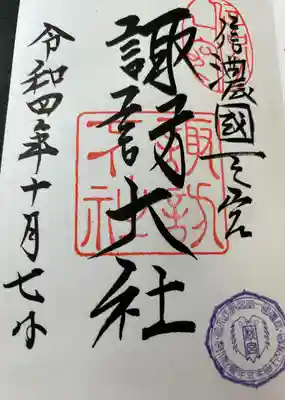 信濃國一之宮
諏訪大社
諏訪大社
令和四年十月七日